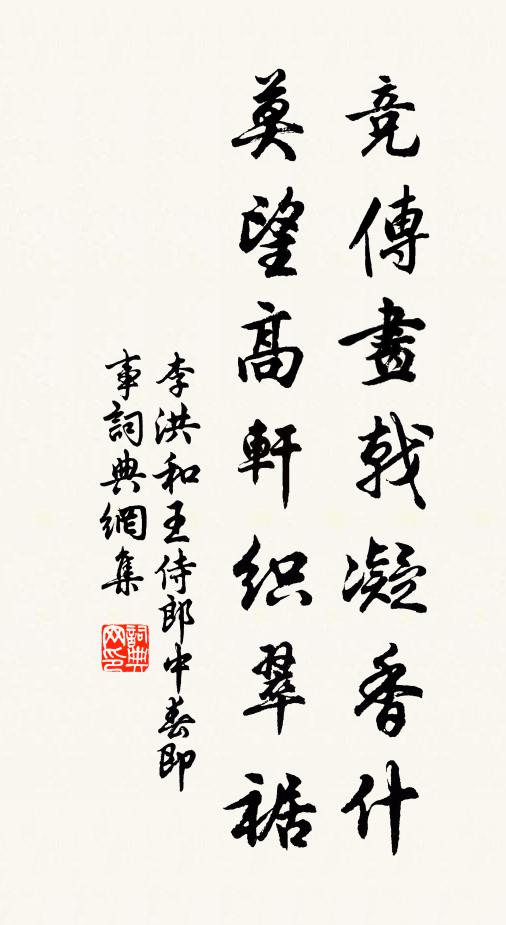 竞傳畫戟凝香什
莫望高軒织翠裾
李洪和王侍郎中春即
事詞典網集
詞典
网印